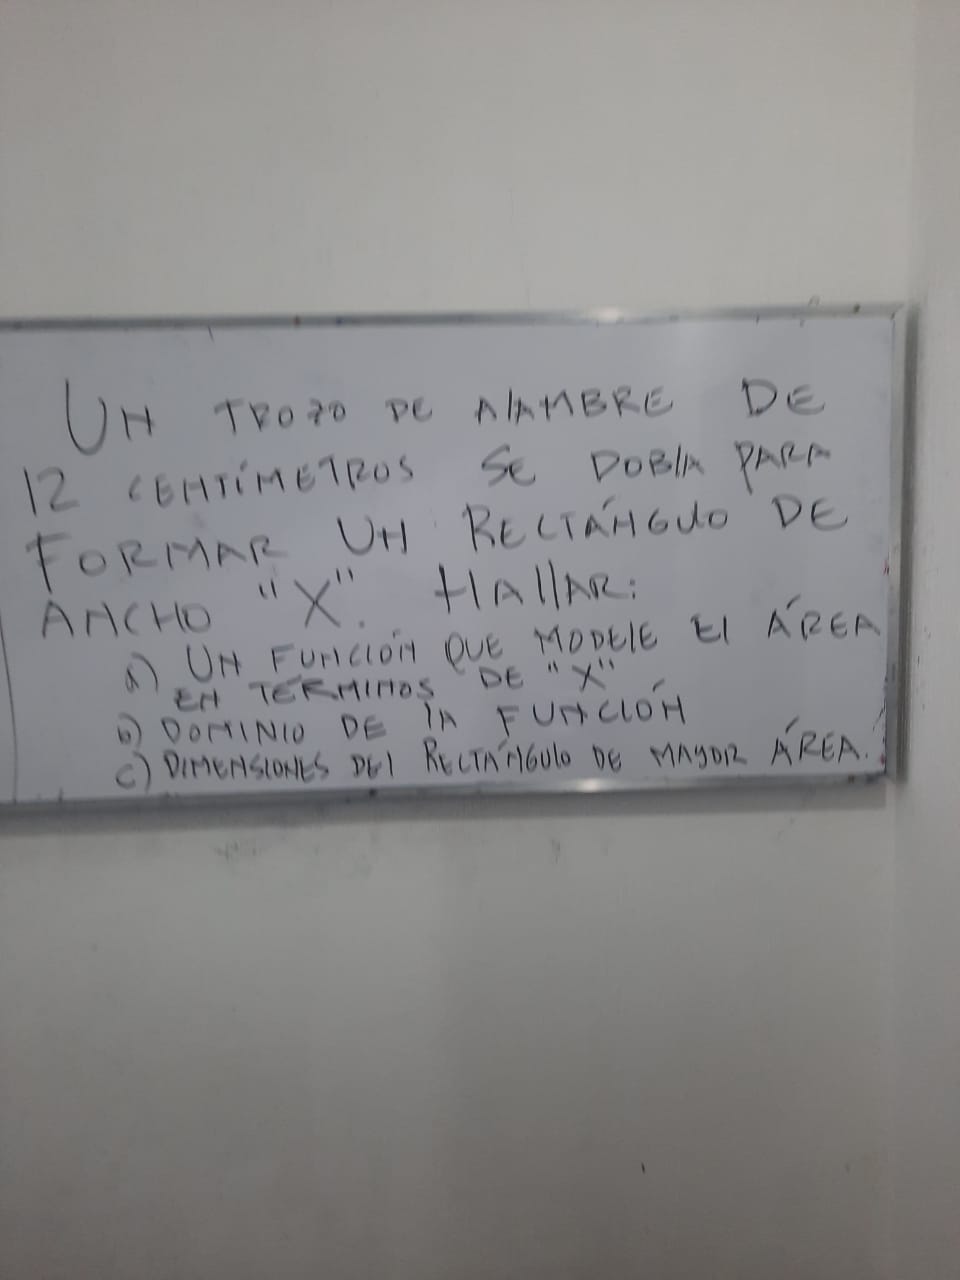 UN TROZO DE AlAMBRE DE
12 CENTÍMETROS SE DOBlA PARA
FORMAR UN RECTÁNGUlO DE
ANCHO "X". HAllAR:
a) UN FUNCIÓN QUE MODElE El ÁREA
EN TÉRMINOS DE "X"
b) DOMINIO DE lA FUNCIÓN
c) DIMENSIONES DEl RECTÁNGUlO DE MAYOR ÁREA.